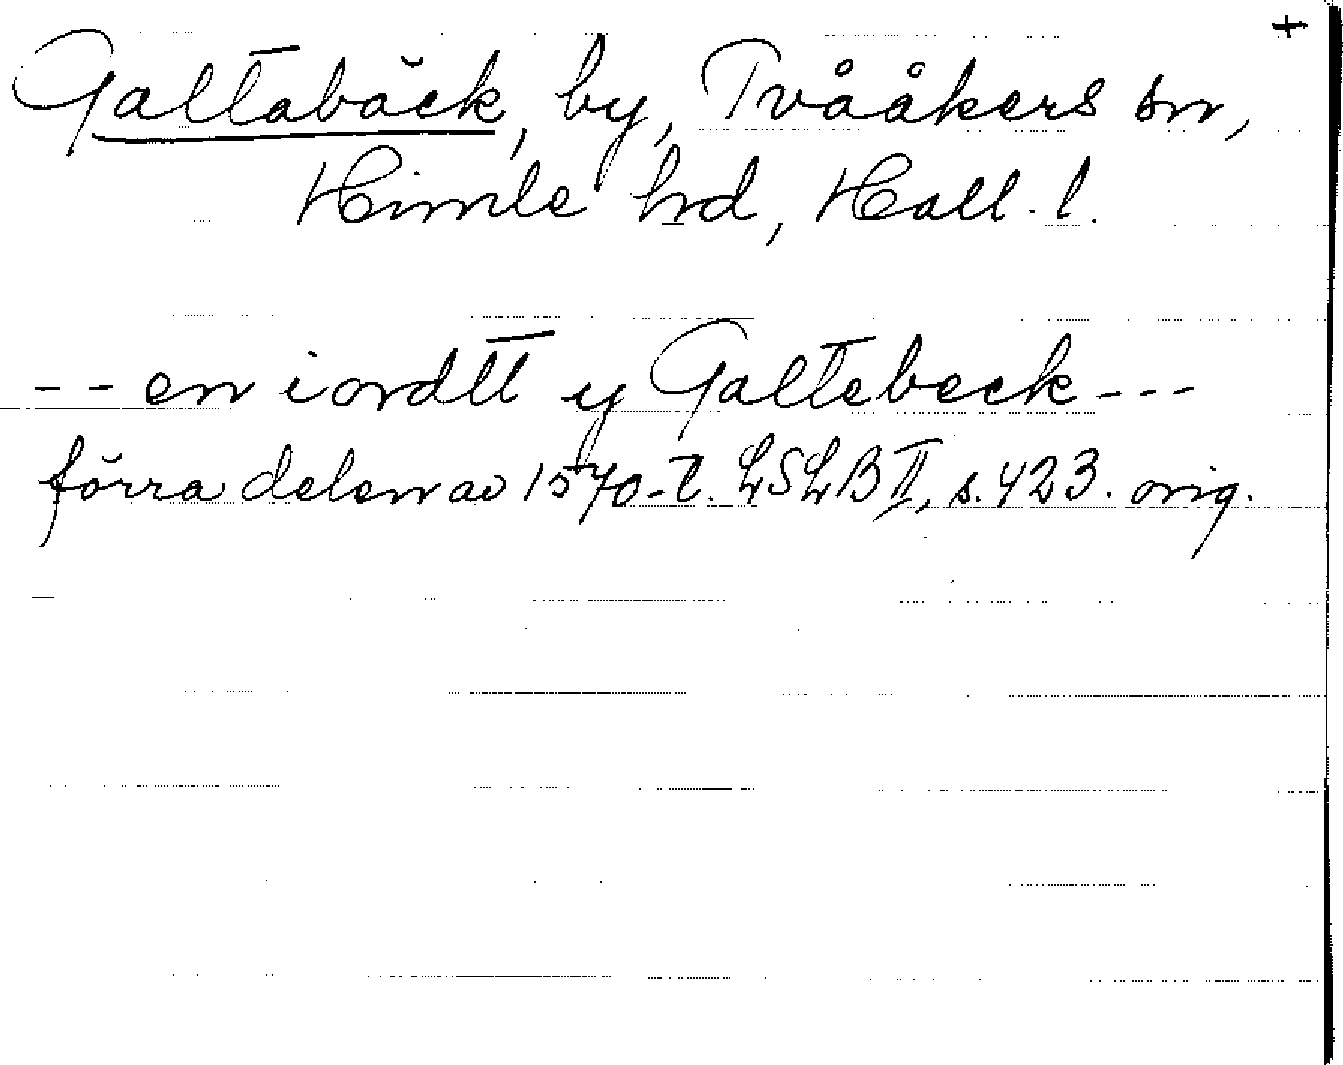 +
Galtabäck, by, Tvååkers sn,
Himle hd, Hall. l.
-- en iordtt y Galtebeck ---
förra delen av 1570-t. LSLB II, s. 423. orig.